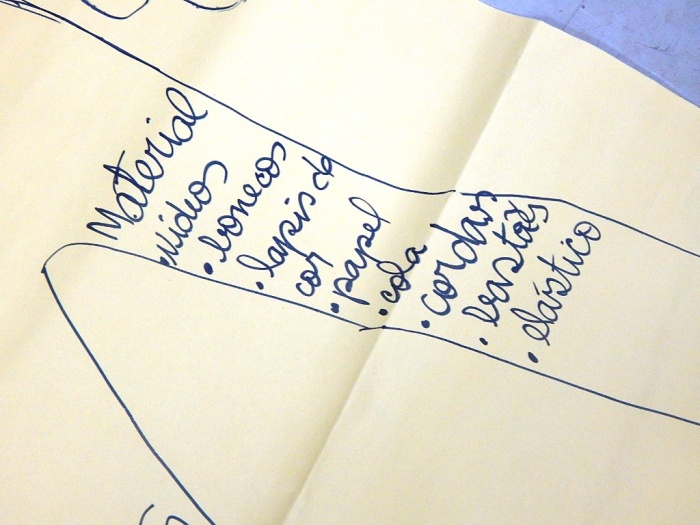 Material
• Vidros
• bonecos
• lapis de
cor
• papel
• cola
• cordas
• elástico